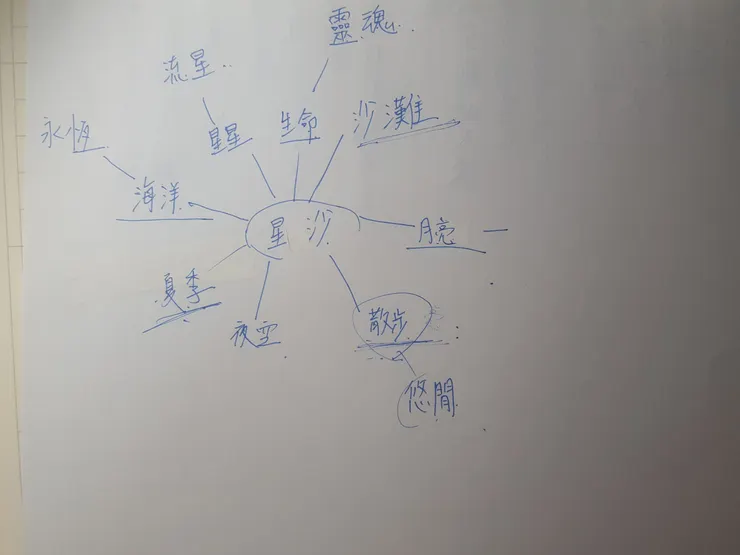 靈魂
流星
永恆
星星
生命
沙灘
海洋
星沙
月亮
夏季
夜空
散步
悠閒